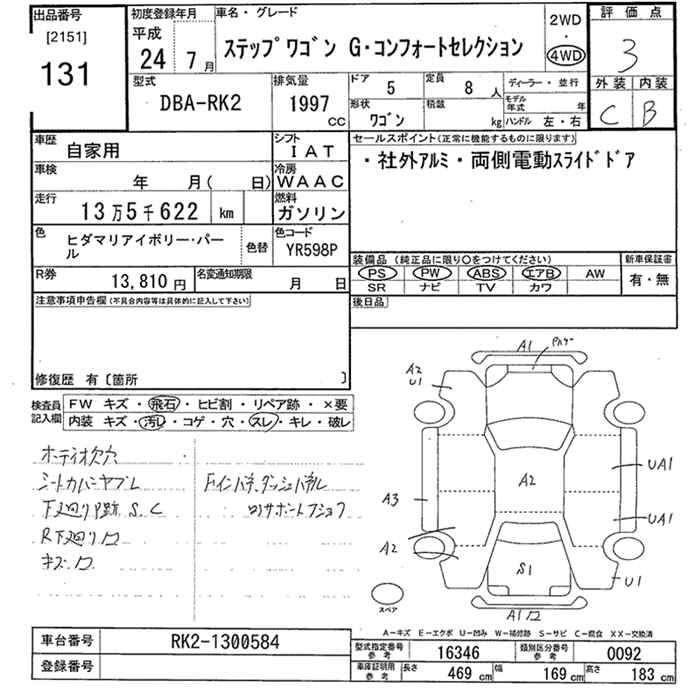 出品番号
[2151]
131
初度登録年月
平成
24年 7月
車名・グレード
ステップワゴン G・コンフォートセレクション
2WD
・
4WD
評価点
3
外装 内装
C B
型式
DBA-RK2
排気量
1997 CC
ドア 5
定員 8人
ディーラー・並行
形状 ワゴン
積載 kg
モデル年式 年
ハンドル 左・右
車歴 自家用
シフト IAT
車検 年 月( 日)
冷房 WAAC
走行 13万5千622 km
燃料 ガソリン
色 ヒダマリアイボリー・パール
色替
色コード YR598P
R券 13,810円
名変通知期限 月 日
セールスポイント(正常に機能するものに限ります)
・社外アルミ・両側電動スライドドア
装備品 (純正品に限り○をつけてください)
新車保証書
PS PW ABS エアB AW
SR ナビ TV カワ
有・無
後日品
注意事項申告欄(不具合内容等は具体的に記入して下さい)
修復歴 有〔箇所 〕
検査員記入欄
FW キズ・飛石・ヒビ割・リペア跡・×要
内装 キズ・汚レ・コゲ・穴・スレ・キレ・破レ
シートカバーヤブレ
下廻り P跡 S.C
R下廻り
A1
A2
U1
A2
UA1
A3
UA1
A2
S1
U1
A1
スペア
A－キズ E－エクボ U－凹み W－補修跡 S－サビ C－腐食 XX－交換済
車台番号 RK2-1300584
登録番号
型式指定番号 参考 16346
類別区分番号 参考 0092
車庫証明用 参考 長さ 469 cm 幅 169 cm 高さ 183 cm